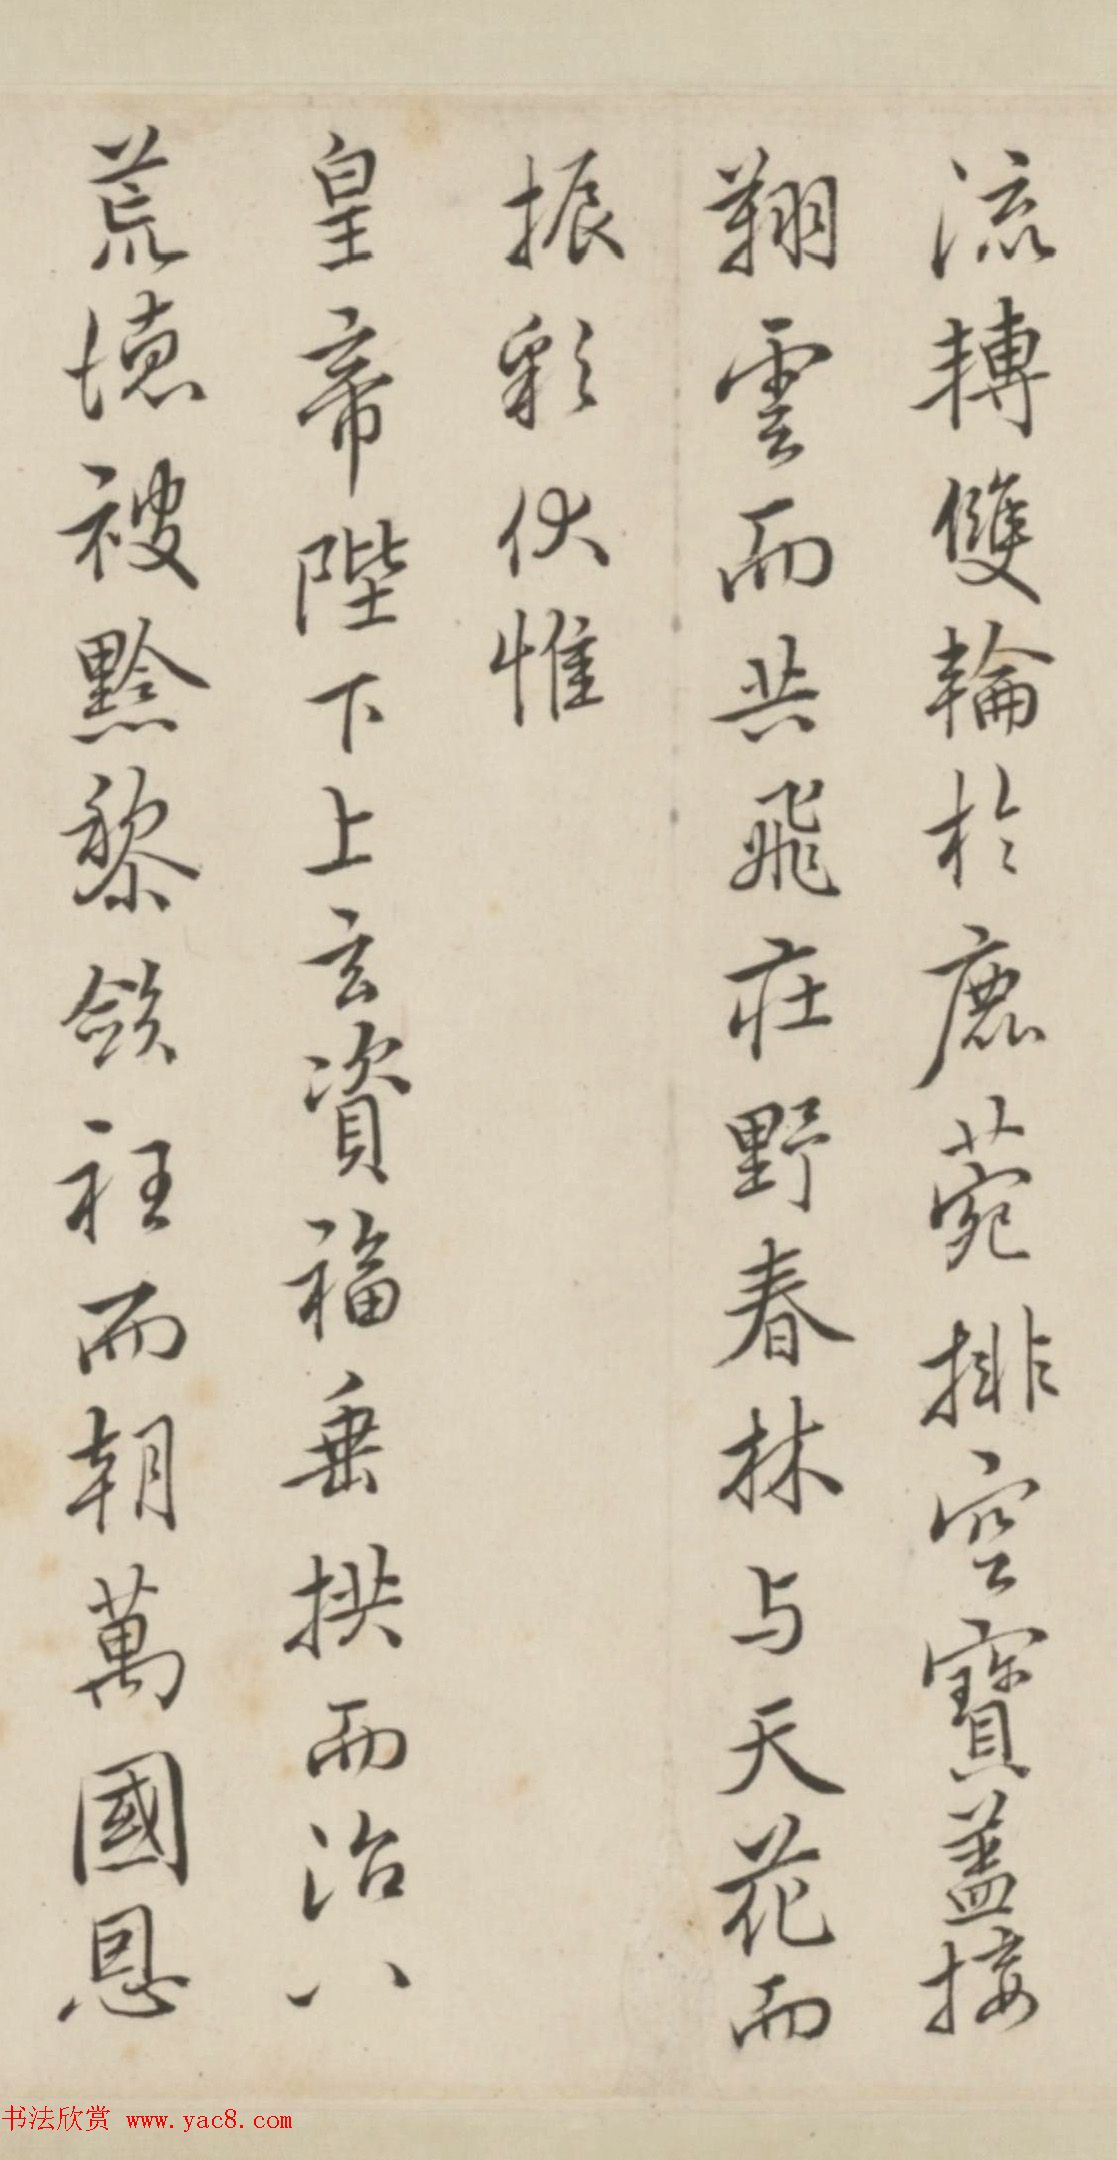 流轉雙輪於鹿菀排空寶盖接
翔雲而共飛莊野春林与天花而
振彩伏惟
皇帝陛下上玄資福垂拱而治八
荒德被黔黎斂衽而朝萬國恩
书法欣赏 www.yac8.com